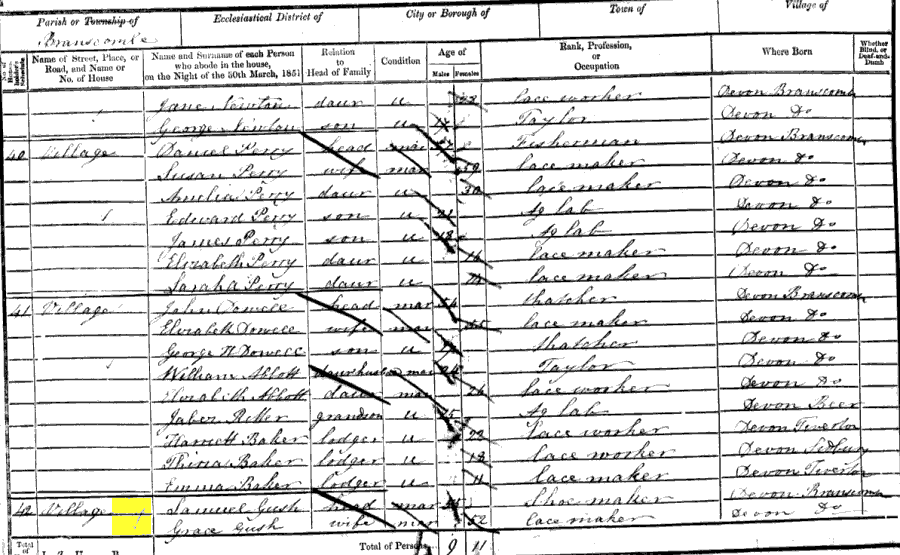 Parish or Township of Ecclesiastical District of City or Borough of Town of Village of
Branscombe
Name of Street, Place, or Road, and Name or No. of House Name and Surname of each Person who abode in the house, on the Night of the 30th March, 1851 Relation to Head of Family Condition Age of Males Females Rank, Profession, or Occupation Where Born Whether Blind, or Deaf-and-Dumb
Jane Newton daur u lace worker Devon Branscomb
George Newton son u Taylor Devon Do
40 Village Daniel Perry head mar Fisherman Devon Branscomb
Susan Perry wife mar 59 lace maker Devon Do
Amelia Perry daur u 30 lace maker Devon Do
Edward Perry son u 21 Ag lab Devon Do
James Perry son u 18 Ag lab Devon Do
Elizabeth Perry daur u 14 lace maker Devon Do
Sarah A Perry daur u lace maker Devon Do
41 Village John Dowell head mar 54 thatcher Devon Branscomb
Elizabeth Dowell wife mar lace maker Devon Do
George H Dowell son u thatcher Devon Do
William Abbott daur husband mar 24 Taylor Devon Do
Elizabeth Abbott daur mar 24 lace worker Devon Do
Jabez grandson u Ag lab Devon Beer
Harriett Baker lodger u 22 lace worker Devon Tiverton
Baker lodger u 18 lace worker Devon Sidbury
Emma Baker lodger u 11 lace maker Devon Tiverton
42 Village Samuel Gush head mar Shoe maker Devon Branscomb
Grace Gush wife mar 52 lace maker Devon Do
Total of Persons 9 11